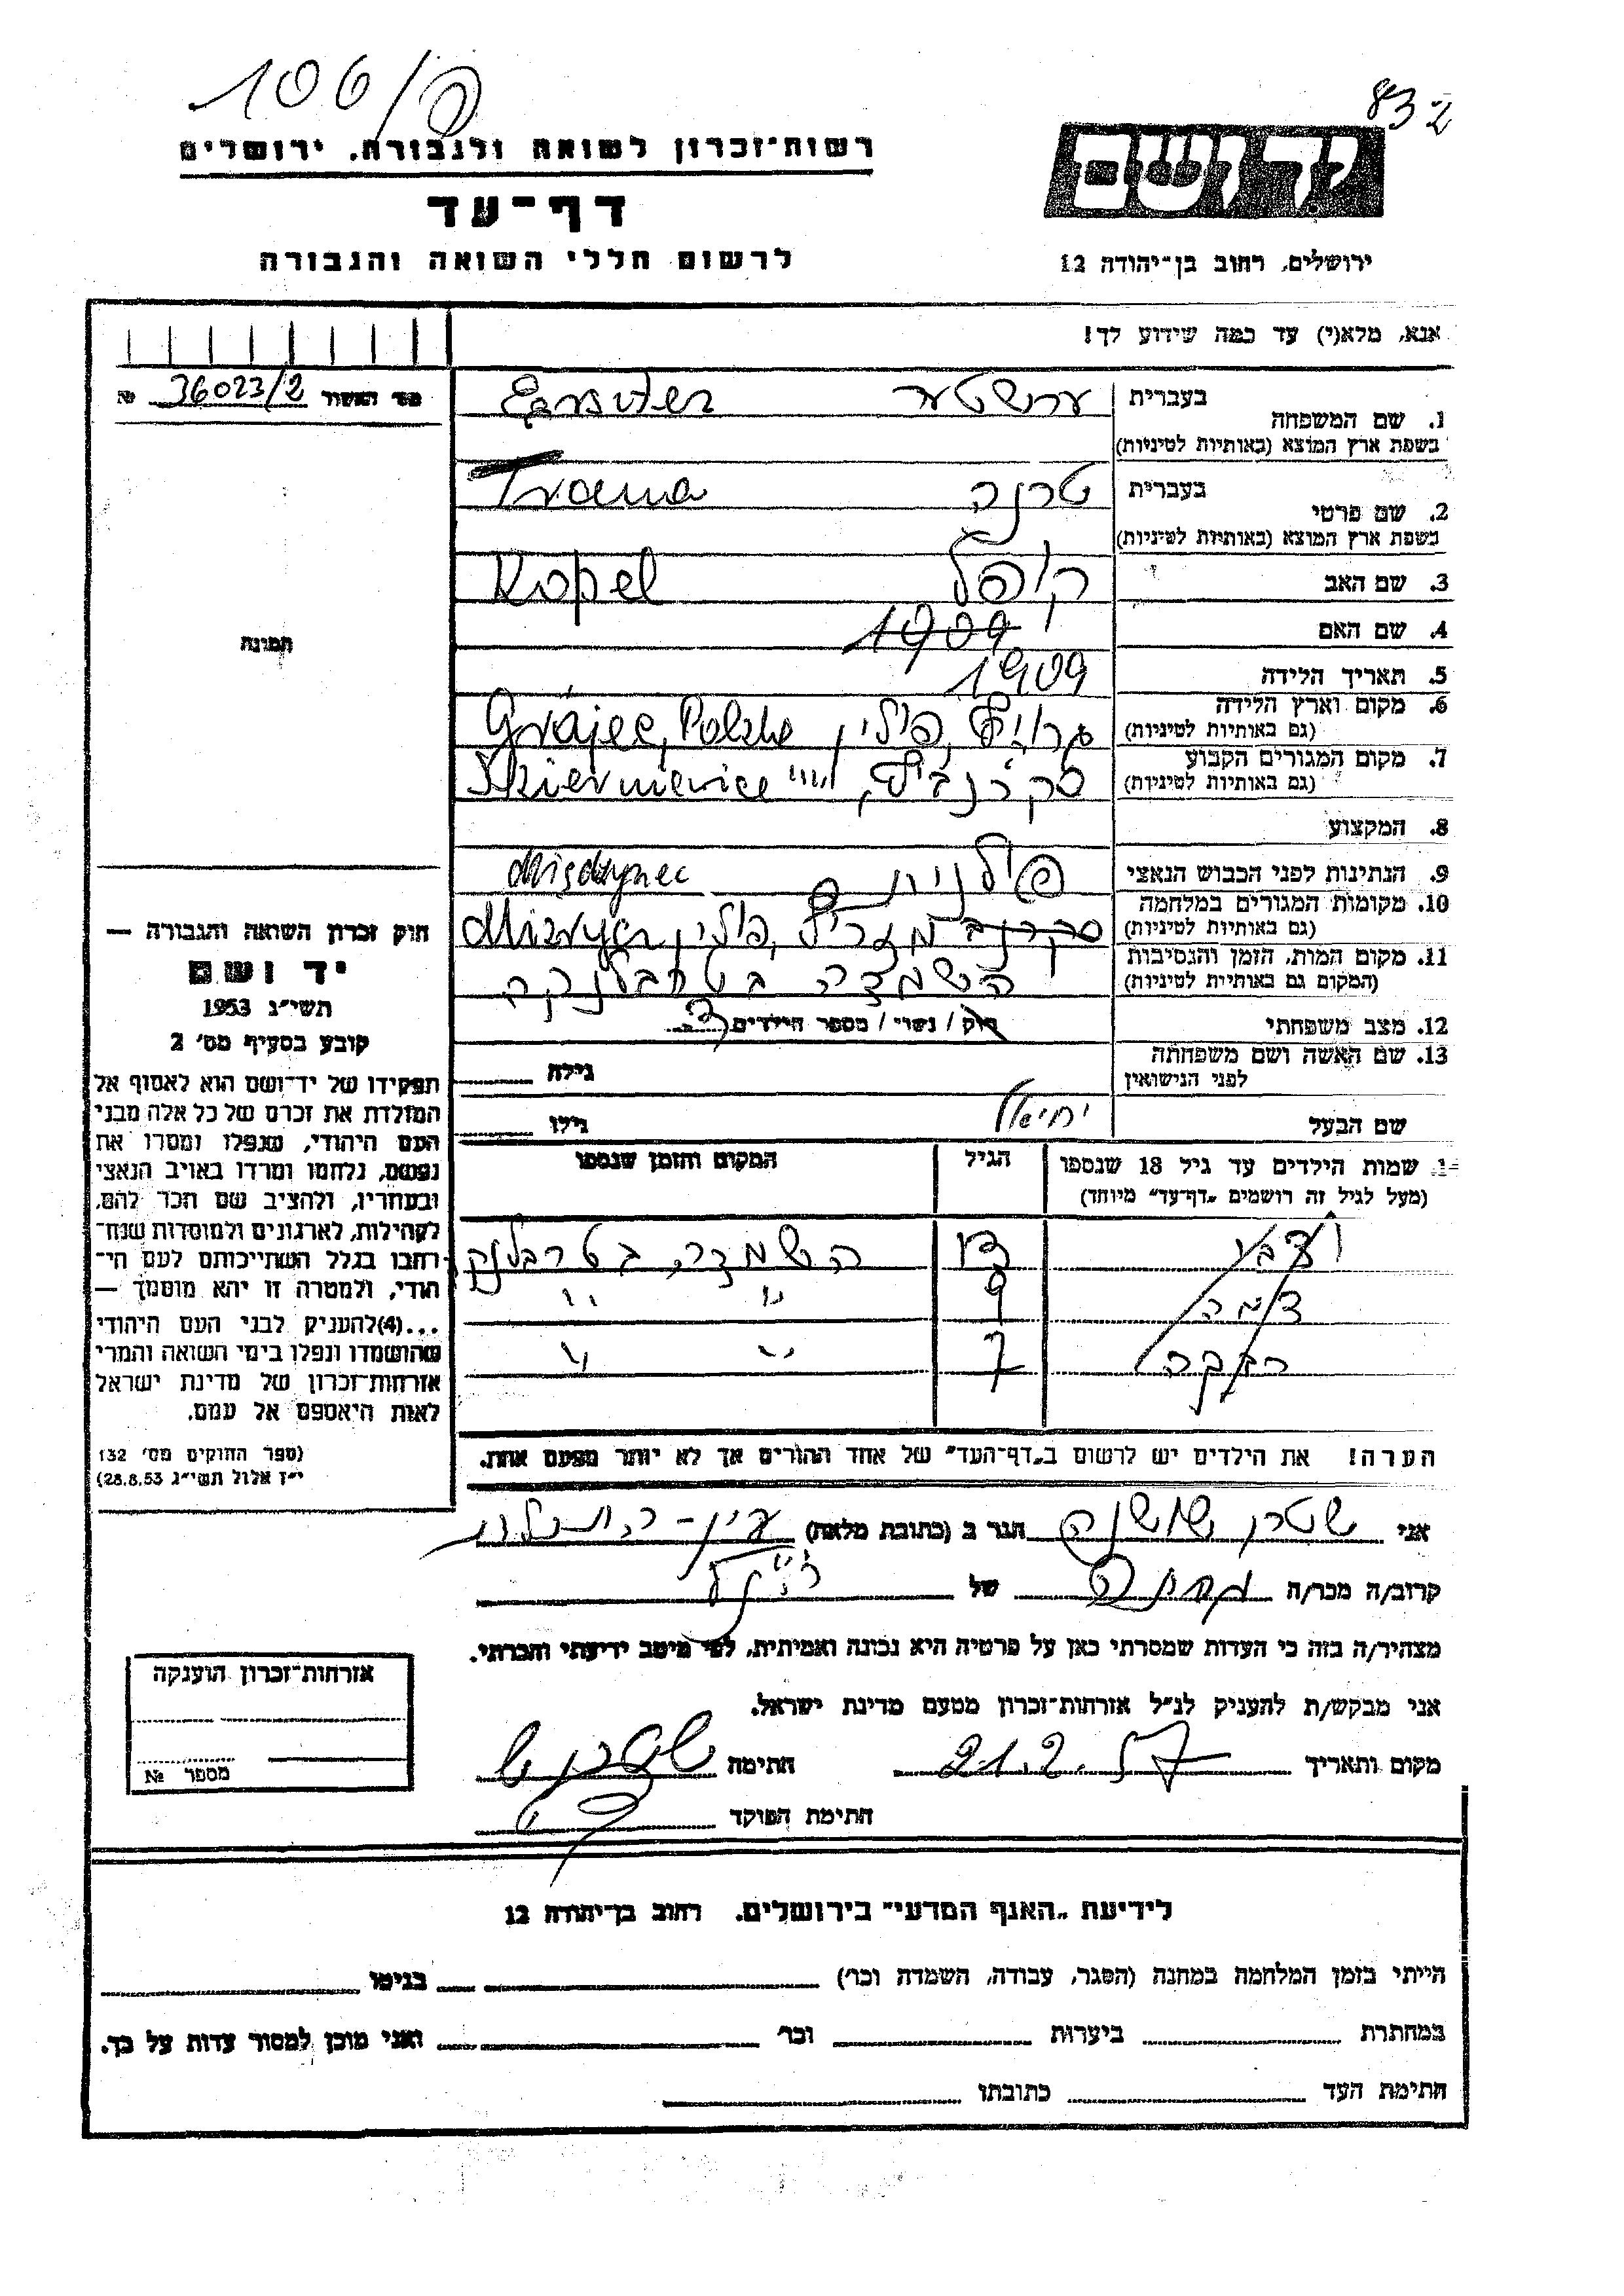 106/פ
832
רשות־זכרון לשואה ולגבורה, ירושלים
דף־עד
לרשום חללי השואה והגבורה
יד ושם
ירושלים, רחוב בן־יהודה 12
אנא, מלא(י) עד כמה שידוע לך!
1. שם המשפחה בעברית ערושטער
בשפת ארץ המוצא (באותיות לטיניות)
2. שם פרטי בעברית טרנה
בשפת ארץ המוצא (באותיות לטיניות)
3. שם האב קופל Kopel
4. שם האם 1909
5. תאריך הלידה 1909
6. מקום וארץ הלידה
(גם באותיות לטיניות) פולין Grójec, Polska
7. מקום המגורים הקבוע
(גם באותיות לטיניות) Skierniewice
8. המקצוע
9. הנתינות לפני הכבוש הנאצי פולנית
10. מקומות המגורים במלחמה
(גם באותיות לטיניות) פולין
11. מקום המות, הזמן והנסיבות
(המקום גם באותיות לטיניות) השמדה בטרבלנקה
12. מצב משפחתי רוק / נשוי / מספר הילדים 3
13. שם האשה ושם משפחתה
לפני הנישואין גילה
שם הבעל יחיאל גילו
שמות הילדים עד גיל 18 שנספו הגיל המקום והזמן שנספו
(מעל לגיל זה רושמים „דף־עד" מיוחד)
13 השמדה בטרבלנקה
9 " "
רבקה 7 " "
הערה! את הילדים יש לרשום ב„דף־העד" של אחד ההורים אך לא יותר מפעם אחת.
מס׳ האשור № 36023/2
תמונה
חוק זכרון השואה והגבורה —
יד ושם
תשי״ג 1953
קובע בסעיף מס׳ 2
תפקידו של יד־ושם הוא לאסוף אל
המולדת את זכרם של כל אלה מבני
העם היהודי, שנפלו ומסרו את
נפשם, נלחמו ומרדו באויב הנאצי
ובעוזריו, ולהציב שם וזכר להם,
לקהילות, לארגונים ולמוסדות שנח־
רחבו בגלל השתייכותם לעם הי־
הודי, ולמטרה זו יהא מוסמך —
...(4)להעניק לבני העם היהודי
שהושמדו ונפלו בימי השואה והמרי
אזרחות־זכרון של מדינת ישראל
לאות היאספם אל עמם.
(ספר החוקים מס׳ 132
י״ז אלול תשי״ג 28.8.53)
אני שטרן שושנה הגר ב (כתובת מלאה) עין-
קרוב/ה מכר/ה של
מצהיר/ה בזה כי העדות שמסרתי כאן על פרטיה היא נכונה ואמיתית, לפי מיטב ידיעתי והכרתי.
אני מבקש/ת להעניק לנ״ל אזרחות־זכרון מטעם מדינת ישראל.
מקום ותאריך 21.2.57 חתימה שטרן ש
חתימת הפוקד
אזרחות־זכרון הוענקה
מספר №
לידיעת „האגף המדעי" בירושלים, רחוב בן־יהודה 12
הייתי בזמן המלחמה במחנה (הסגר, עבודה, השמדה וכו׳) בגיטו
במחתרת ביערות וכו׳ ואני מוכן למסור עדות על כך.
חתימת העד כתובתו